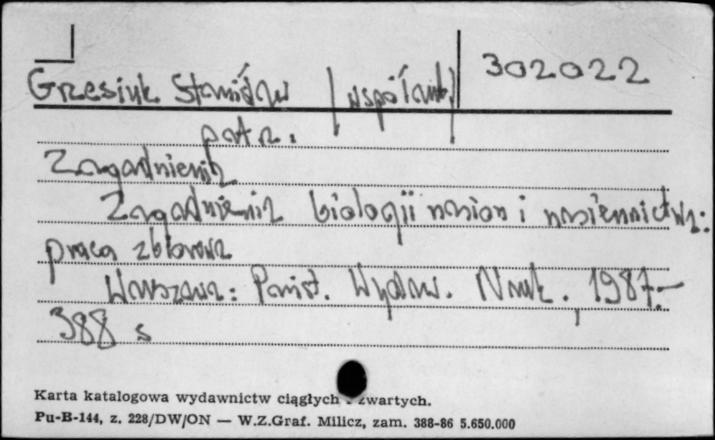 Grzesiuk Stanisław /współaut/ 302022
patrz.
Zagadnienia
Zagadnienia biologii nasion i nasiennictwa:
praca zbiorowa
Warszawa: Państ. Wydaw. Nauk., 1987.-
388 s
Karta katalogowa wydawnictw ciągłych i zwartych.
Pu-B-144, z. 228/DW/ON — W.Z.Graf. Milicz, zam. 388-86 5.650.000